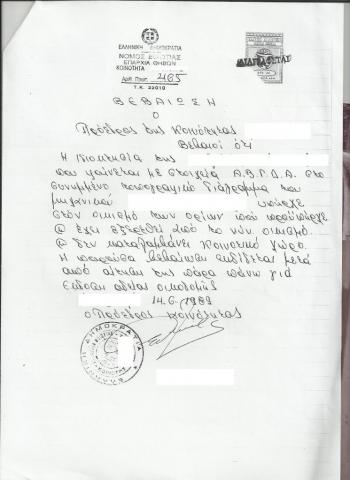 ΕΛΛΗΝΙΚΗ ΔΗΜΟΚΡΑΤΙΑ
ΝΟΜΟΣ ΒΟΙΩΤΙΑΣ
ΕΠΑΡΧΙΑ ΘΗΒΩΝ
ΚΟΙΝΟΤΗΤΑ
Αριθ. Πρωτ. 465
Τ.Κ. 32010
ΒΕΒΑΙΩΣΗ
Ο
Πρόεδρος της Κοινότητας
Βεβαιοί ότι
Η ιδιοκτησία της
που φαίνεται με στοιχεία Α.Β.Γ.Δ.Α. στο
συνημμένο τοπογραφικό διάγραμμα του
μηχανικού υπάρχει
στον οικισμό των ορίων που προϋπήρχε
@ έχει εξαιρεθεί από το νυν οικισμό.
@ δεν καταλαμβάνει κοινοτικό χώρο.
Η παρούσα βεβαίωση εκδίδεται μετά
από αίτηση της πάρα πάνω για
έκδοση αδείας οικοδομής
14.6.1989
Ο Πρόεδρος Κοινότητας
ΕΛΛΗΝΙΚΗ ΔΗΜΟΚΡΑΤΙΑ